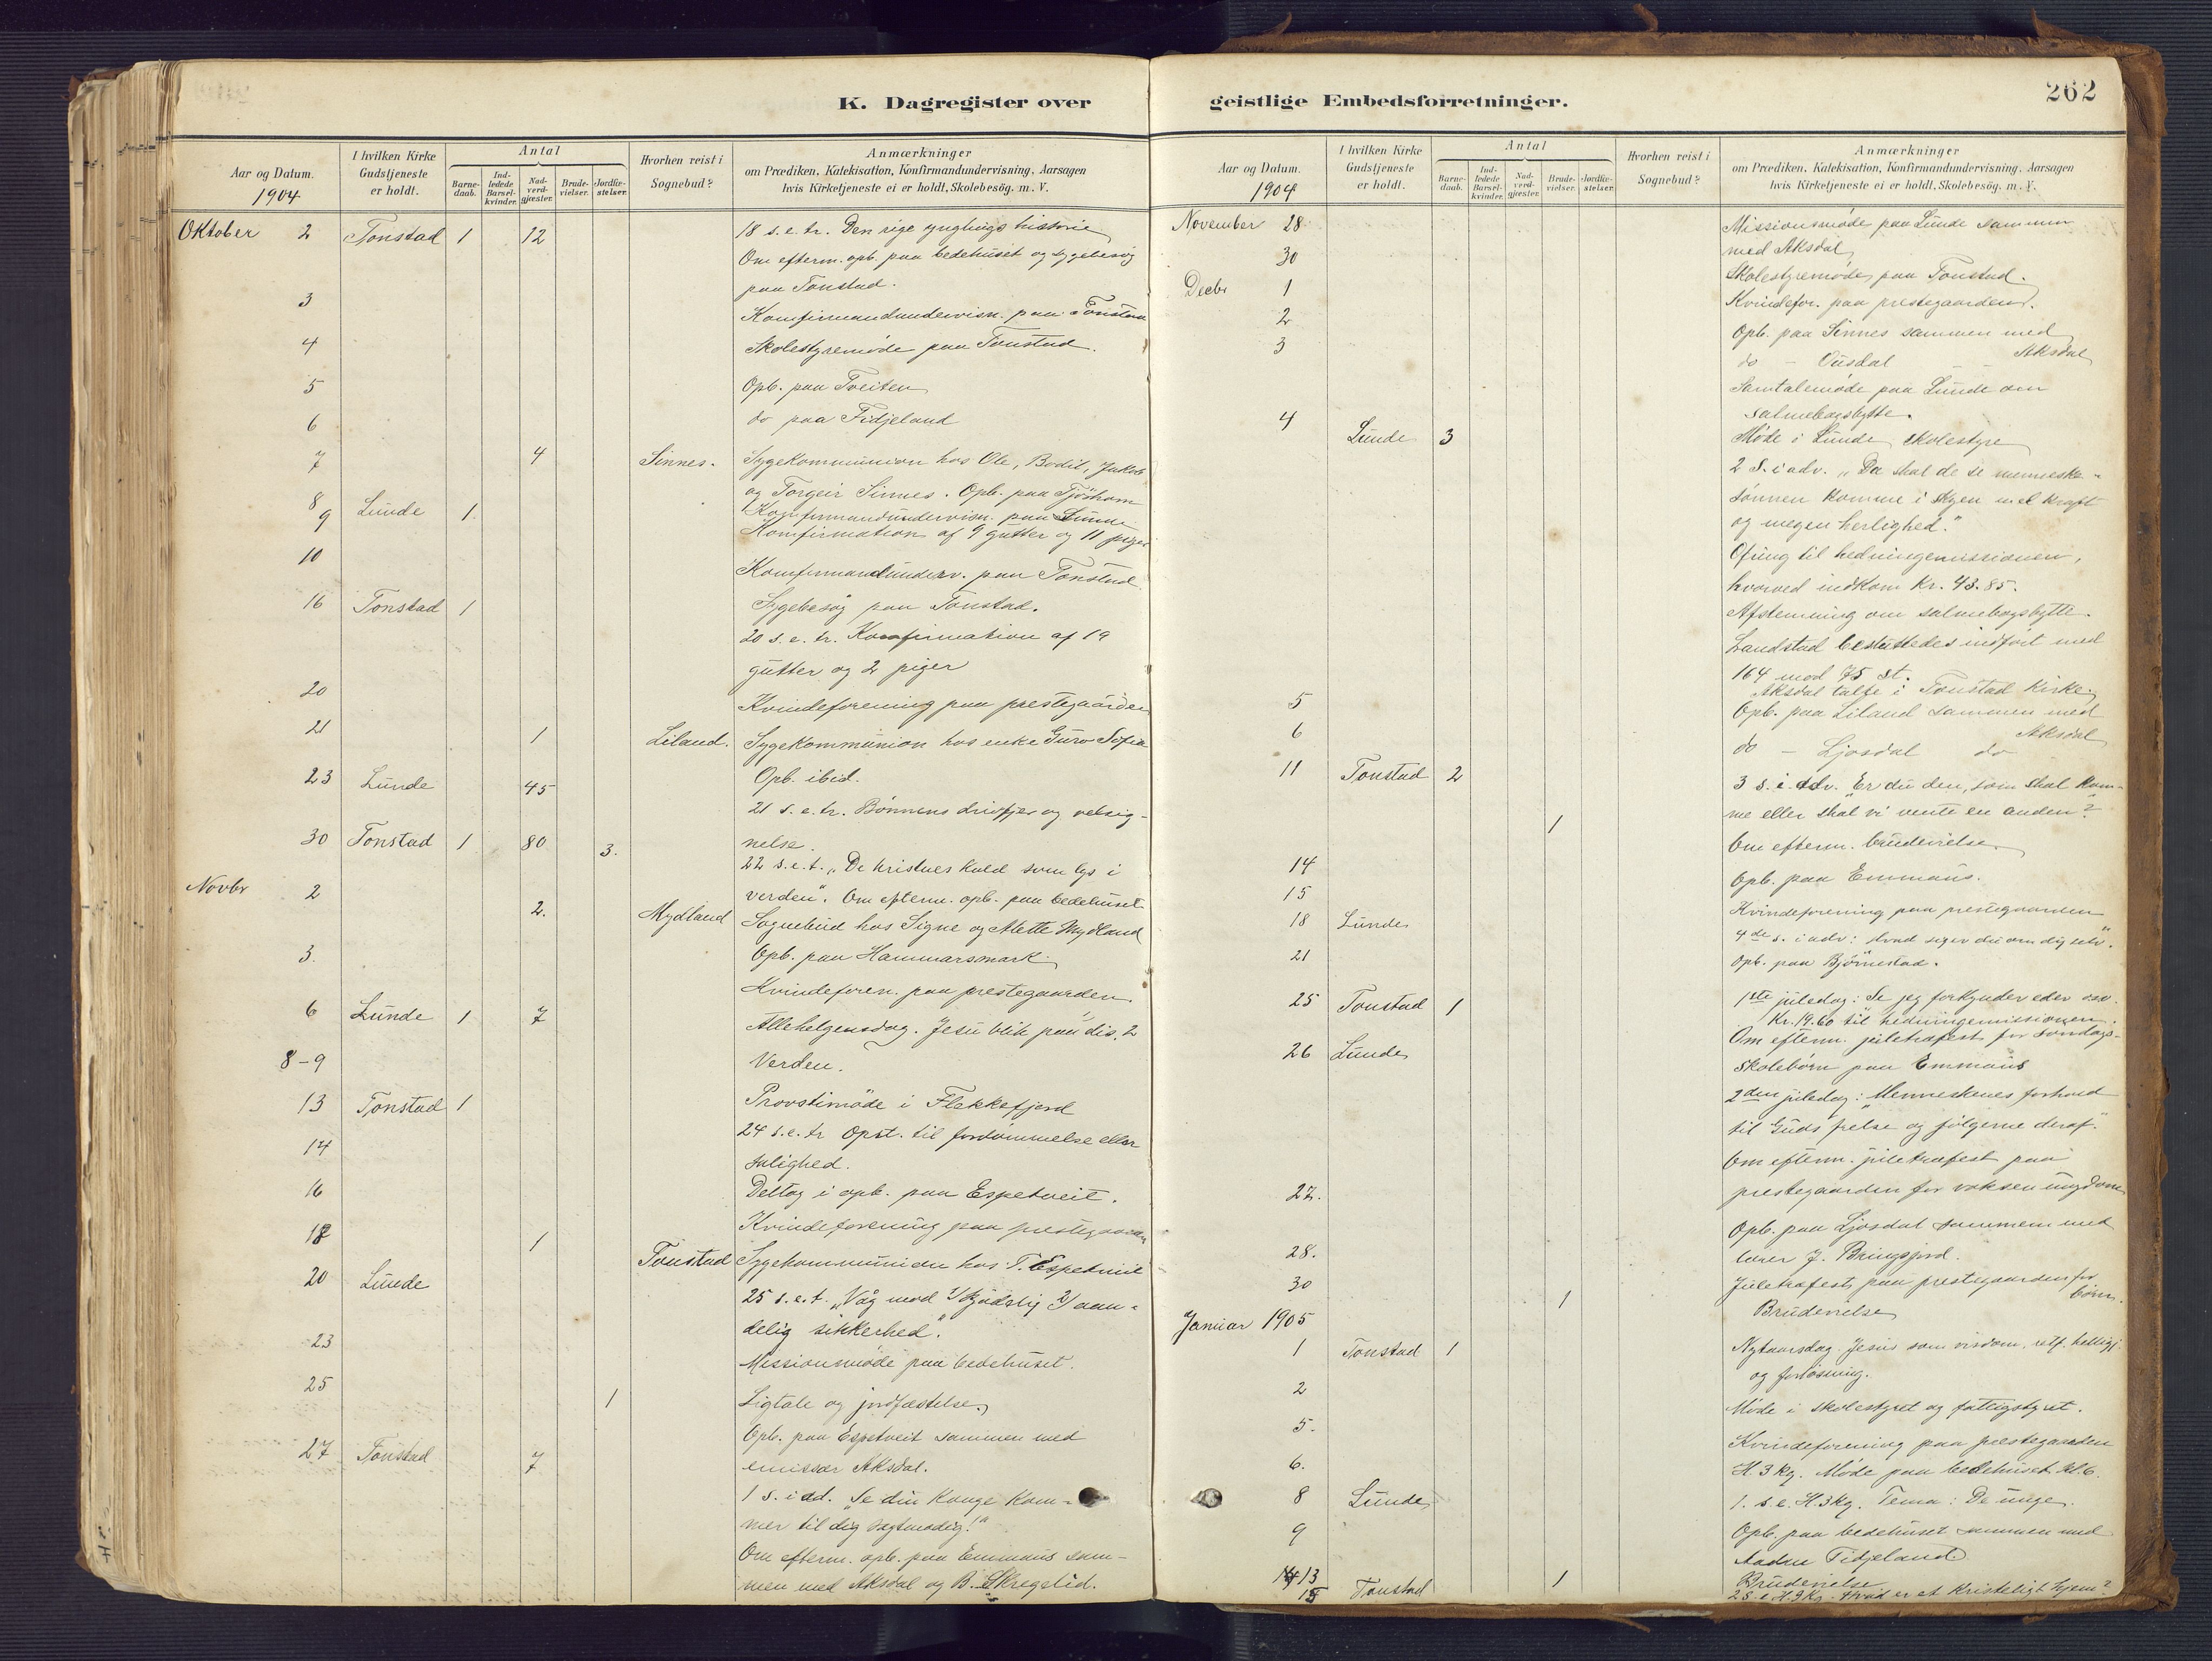 K. Dagregister over
geistlige Embedsforretninger.
262
Aar og Datum.
1904
I hvilken Kirke
Gudstjeneste
er holdt.
Antal
Barne-
daab.
Ind-
ledede
Barsel-
kvinder.
Nad-
verd-
gjæster.
Brude-
vielser.
Jordfæ-
stelser.
Hvorhen reist i
Sognebud?
Anmærkninger
om Prædiken, Katekisation, Konfirmandundervisning, Aarsagen
hvis Kirketjeneste ei er holdt, Skolebesög. m. V.
Oktober 2 Tonstad 1 12 18 s. e. tr. Den rige ynglings historie
Om efterm. opb. paa bedehuset og sygebesøg
paa Tonstad.
3 Konfirmandundervisn. paa Tonstad
4 Skolestyremöde paa Tonstad.
5 Opb. paa Tveiten
6 do paa Fidjeland
7 4 Sinnes. Sygekommunion hos Ole, Bodil, Jakob
og Torgeir Sinnes. Opb. paa Tjörhom
8 Konfirmandundervisn. paa Lunde
9 Lunde 1. Konfirmation af 9 gutter og 11 piger
10 Konfirmandunderv. paa Tonstad.
Sygebesøg paa Tonstad.
16 Tonstad 1 20 s. e. tr. Konfirmation af 19
gutter og 2 piger
20 Kvindeforening paa prestegaarden
21 1 Liland. Sygekommunion hos enke Guro Sofie
Opb. ibid.
23 Lunde 45 21 s. e. tr. Bønnens drivfjer og velsig-
nelse.
30 Tonstad 1 80 3. 22 s. e. t. „De kristnes kald som lys i
verden". Om efterm. opb. paa bedehuset
Novbr 2 2. Mydland Sognebud hos Signe og Mette Mydland
Opb. paa Hammarsmark
3. Kvindeforen. paa prestegaarden.
6 Lunde 1 7 Allehelgensdag. Jesu blik paa dis. 2
Verden.
8-9 Provstimöde i Flekkefjord
13 Tonstad 1 24 s. e. tr Opst. til fordömmelse eller
salighed.
14 Deltog i opb. paa Espetveit.
16 Kvindeforening paa prestegaarden
18 1 Tonstad Sygekommunion hos T. Espetveit
20 Lunde 25 s. e. t. „Våg mod 1/ kjødelig 2/ aan-
delig sikkerhed".
23 Missionsmöde paa bedehuset.
25 1 Ligtale og jordfæstelse.
Opb. paa Espetveit sammen med
emissær Aksdal.
27 Tonstad 7 1 s. i ad. „Se din Konge kom-
mer til dig sagtmodig!"
Om efterm. opb. paa Emmaus sam-
men med Aksdal og B. Skregelid.
Aar og Datum.
1904
I hvilken Kirke
Gudstjeneste
er holdt.
Antal
Barne-
daab.
Ind-
ledede
Barsel-
kvinder.
Nad-
verd-
gjæster.
Brude-
vielser.
Jordfæ-
stelser.
Hvorhen reist i
Sognebud?
Anmærkninger
om Prædiken, Katekisation, Konfirmandundervisning, Aarsagen
hvis Kirketjeneste ei er holdt, Skolebesög. m. V.
November 28 Missionsmöde paa Lunde sammen
med Aksdal
30 Skolestyremöde paa Tonstad.
Decbr 1 Kvindefor. paa prestegaarden.
2 Opb. paa Sinnes sammen med
Aksdal
3 do – Ousdal
Samtalemöde paa Lunde om
salmebogsbytte.
Möde i Lunde skolestyre
4 Lunde 3 2 S. i adv. „Da skal de se menneske-
sönnen komme i skyen med kraft
og megen herlighed."
Ofring til hedningemissionen,
hvorved indkom Kr. 43.85.
Afstemning om salmebogsbytte.
Landstad besluttedes indført med
164 mod 75 st.
Aksdal talte i Tonstad Kirke.
5 Opb. paa Liland sammen med
Aksdal
6 do – Ljosdal do
11 Tonstad 2 3 s. i. adv. „Er du den, som skal kom-
me eller skal vi vente en anden?"
1 Om efterm. brudevielse.
14 Opb. paa Emmaus.
15 Kvindeforening paa prestegaarden
18 Lunde 4de s. i adv: „Hvad siger du om dig selv".
21 Opb. paa Bjørnestad.
25 Tonstad 1 1ste juledag: Se jeg forkynder eder osv.
Kr. 19.60 til hedningemissionen.
Om efterm. juletræfest for söndags-
skolebørn paa Emmaus
26 Lunde 2den juledag: „Menneskenes forhold
til Guds frelse og følgerne deraf."
Om efterm. juletræfest paa
prestegaarden for voksen ungdom
27. Opb. paa Ljosdal sammen med
lærer J. Bringsjord.
28. Juletræfest paa prestegaarden for
børn.
30 1 Brudevielse
Januar 1905
1 Tonstad 1 Nytaarsdag. Jesus som visdom, retf. helligj.
og forløsning.
2 Möde i skolestyret og fattigstyret.
5. Kvindeforening paa prestegaarden
6. H. 3 kg. Möde paa bedehuset kl. 6.
8 Lunde 1. s. e. H. 3 kg. Tema: De unge.
9 Opb. paa bedehuset sammen med
Aadne Fidjeland
13 1 Brudevielse
15 Tonstad 2 S. e. H. 3 Kg. Hvad er et kristeligt hjem?